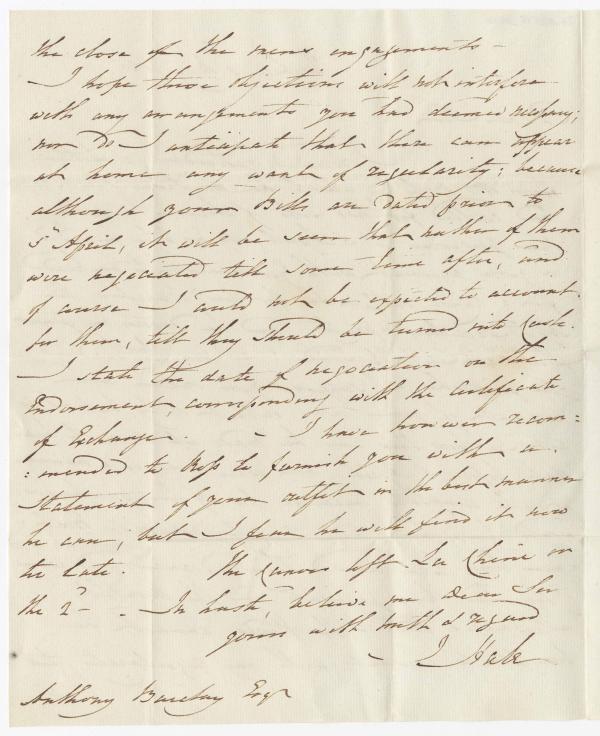 the close of the mens engagements —
I hope these objections will not interfere
with any arrangements you had deemed necessary;
nor do I anticipate that there can appear
at home any want of regularity; because
although your Bills are dated prior to
5th April, it will be seen that neither of them
were negociated till some time after, and
of course I could not be expected to account
for them, till they should be turned into Cash.
I state the date of negociation on the
Endorsement, corresponding with the Certificate
of Exchange. — I have however recom=
=mended to Ross to furnish you with a
Statement of your outfit in the best manner
he can, but I fear he will find it now
too late. The Canoes left La Chine on
the 2d — . In haste, believe me Dear Sir
yours with truth & regard
J Hale
Anthony Barclay Esqr